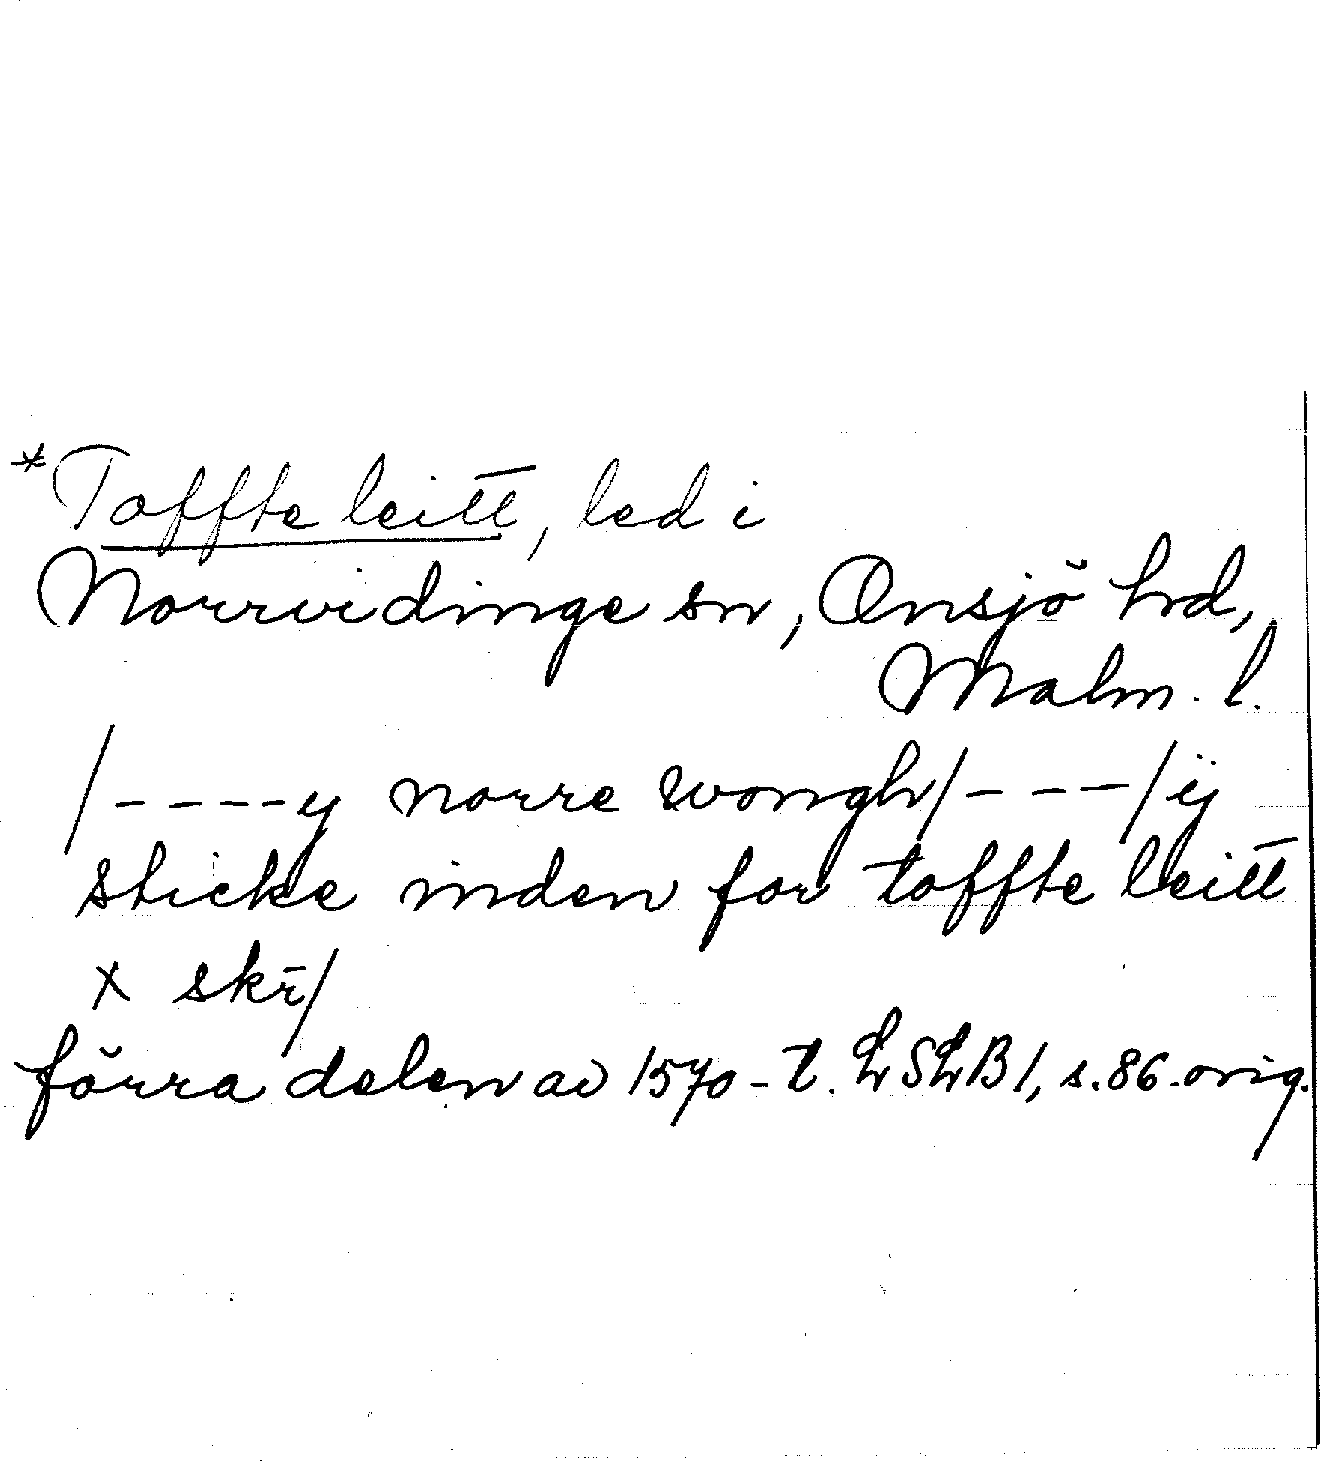 *Toffte leitt, led i
Norrvidinge sn, Onsjö hrd,
Malm. l.
/----y norre wongh/----/ij
sticke inden for toffte leitt
x skr̄/
förra delen av 1570-t. LSLB 1, s. 86. orig.